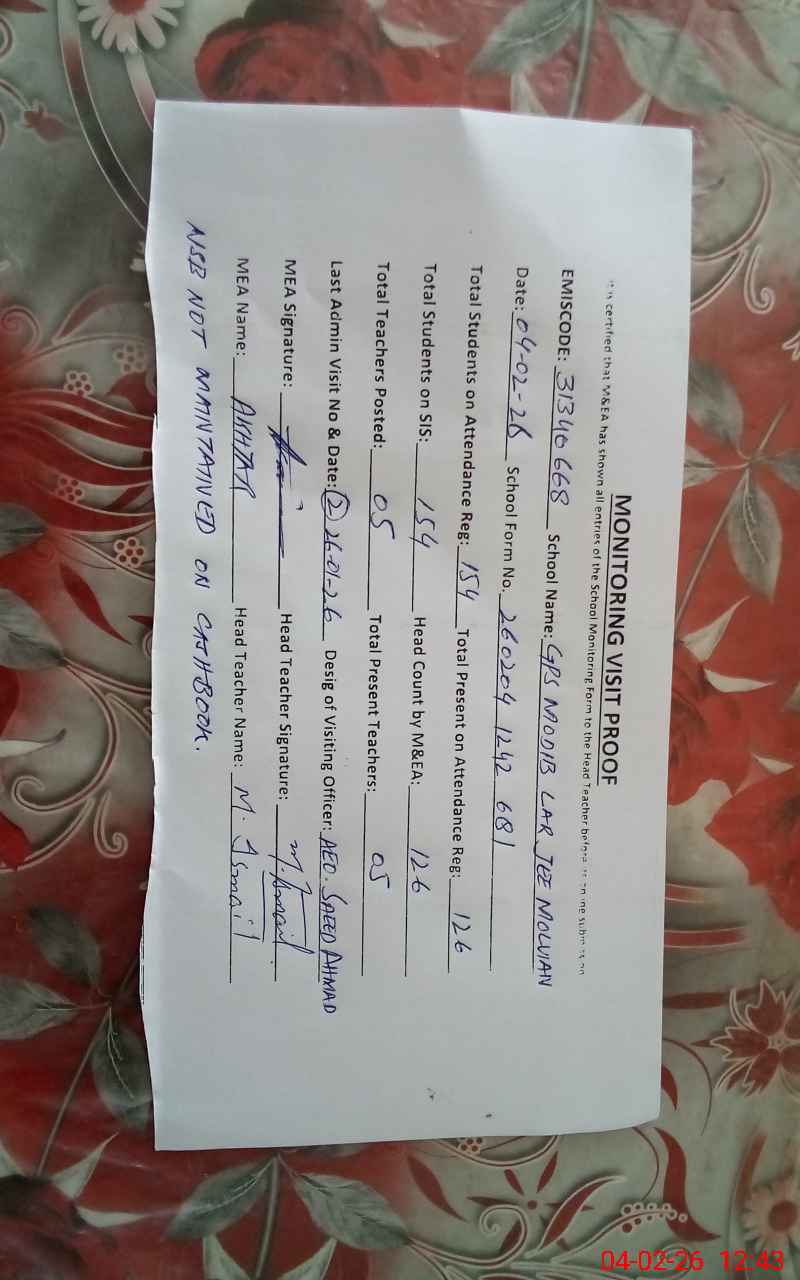 MONITORING VISIT PROOF
It is certified that M&EA has shown all entries of the School Monitoring Form to the Head Teacher before
EMISCODE: 31340668 School Name: GPS MODIB LAR JEE MOLVIAN
Date: 04-02-26 School Form No. 260204 1242 681
Total Students on Attendance Reg: 154 Total Present on Attendance Reg: 126
Total Students on SIS: 154 Head Count by M&EA: 126
Total Teachers Posted: 05 Total Present Teachers: 05
Last Admin Visit No & Date: (2) 26-01-26 Desig of Visiting Officer: AEO. SAEED AHMAD
MEA Signature: Head Teacher Signature: M. Ismail
MEA Name: AKHTAR Head Teacher Name: M. Ismail
NSB NOT MAINTAINED ON CASHBOOK.
04-02-26 12:43